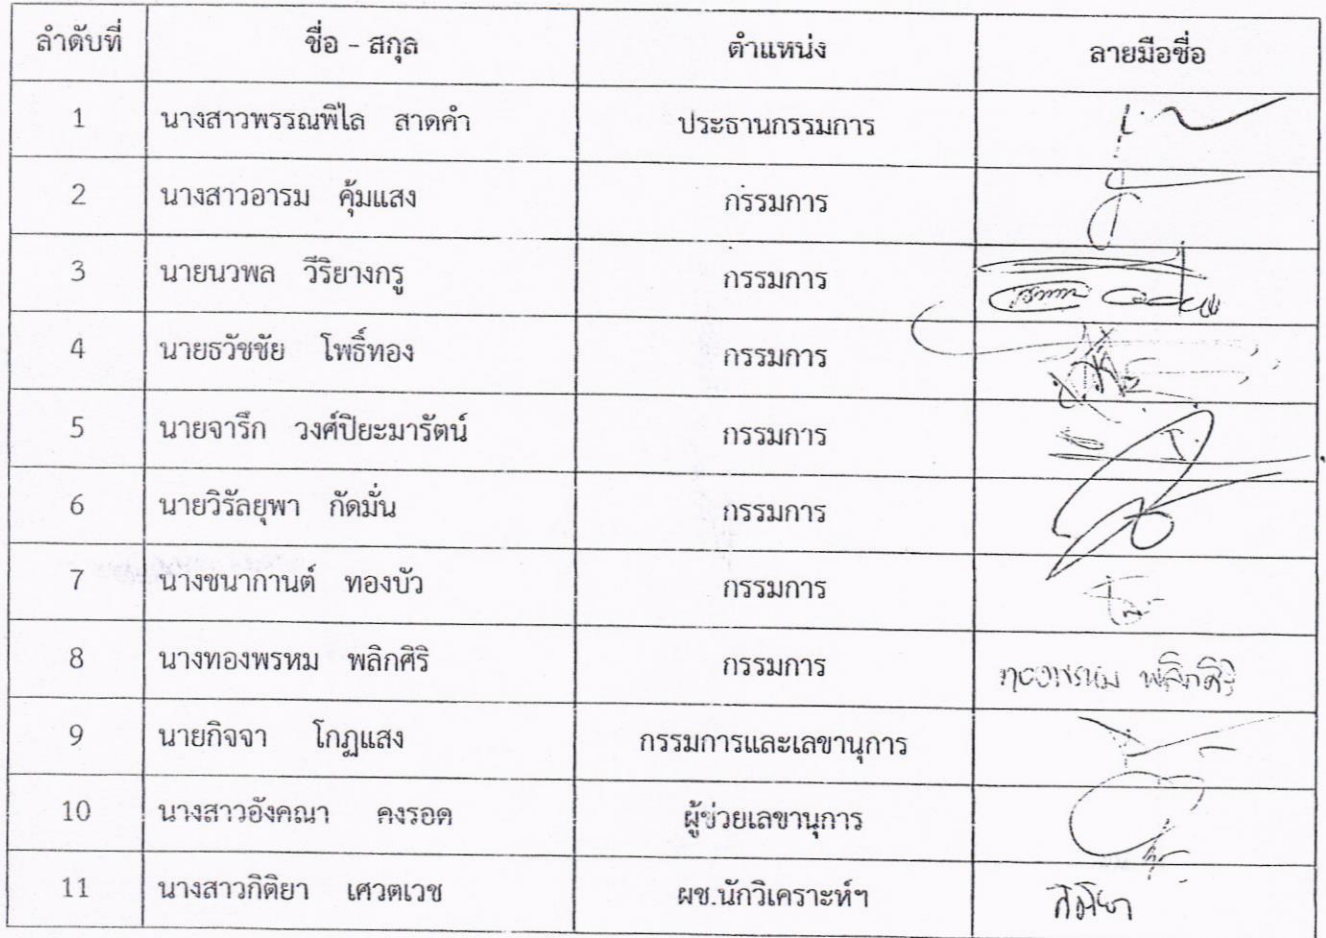 ลำดับที่ ชื่อ - สกุล ตำแหน่ง ลายมือชื่อ
1 นางสาวพรรณพิไล สาดคำ ประธานกรรมการ
2 นางสาวอารม คุ้มแสง กรรมการ
3 นายนวพล วีริยางกรู กรรมการ
4 นายธวัชชัย โพธิ์ทอง กรรมการ
5 นายจารึก วงศ์ปิยะมารัตน์ กรรมการ
6 นายวิรัลยุพา กัดมั่น กรรมการ
7 นางชนากานต์ ทองบัว กรรมการ
8 นางทองพรหม พลิกศิริ กรรมการ ทองพรหม พลิกศิริ
9 นายกิจจา โกฏแสง กรรมการและเลขานุการ
10 นางสาวอังคณา คงรอด ผู้ช่วยเลขานุการ
11 นางสาวกิติยา เศวตเวช ผช.นักวิเคราะห์ฯ กิติยา